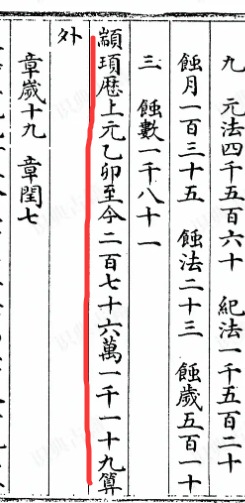 九　元法四千五百六十　紀法一千五百二十
蝕月一百三十五　蝕法二十三　蝕歲五百一十
三　蝕數一千八十一
顓頊曆上元乙卯至今二百七十六萬一千一十九算
外
章歲十九　章閏七